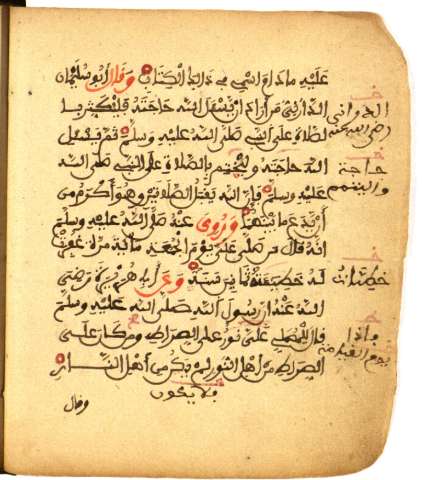 عليه ما دام اسمي في ذلك الكتاب وقال أبو سليمان
الداراني من أراد ان يسئل الله حاجته فليكثر با
لصلاة على النبي صلى الله عليه وسلم ثم يسئل
الله حاجته وليختم بالصلاة على النبي صلى الله
عليه وسلم فإن الله يقبل الصلاتين وهو أكرم من
أن يدع ما بينهما وروي عنه صلى الله عليه وسلم
انه قال من صلى علي يوم الجمعة مائة مرة غفرت
له خطيئة ثمانين سنة وعن أبي هريرة رضي
الله عنه أن رسول الله صلى الله عليه وسلم
قال للمصلي علي نور على الصراط ومن كان على
الصراط من أهل النور لم يكن من أهل النار
فلا يكون
وقال
رضي الله عنه
حاجة